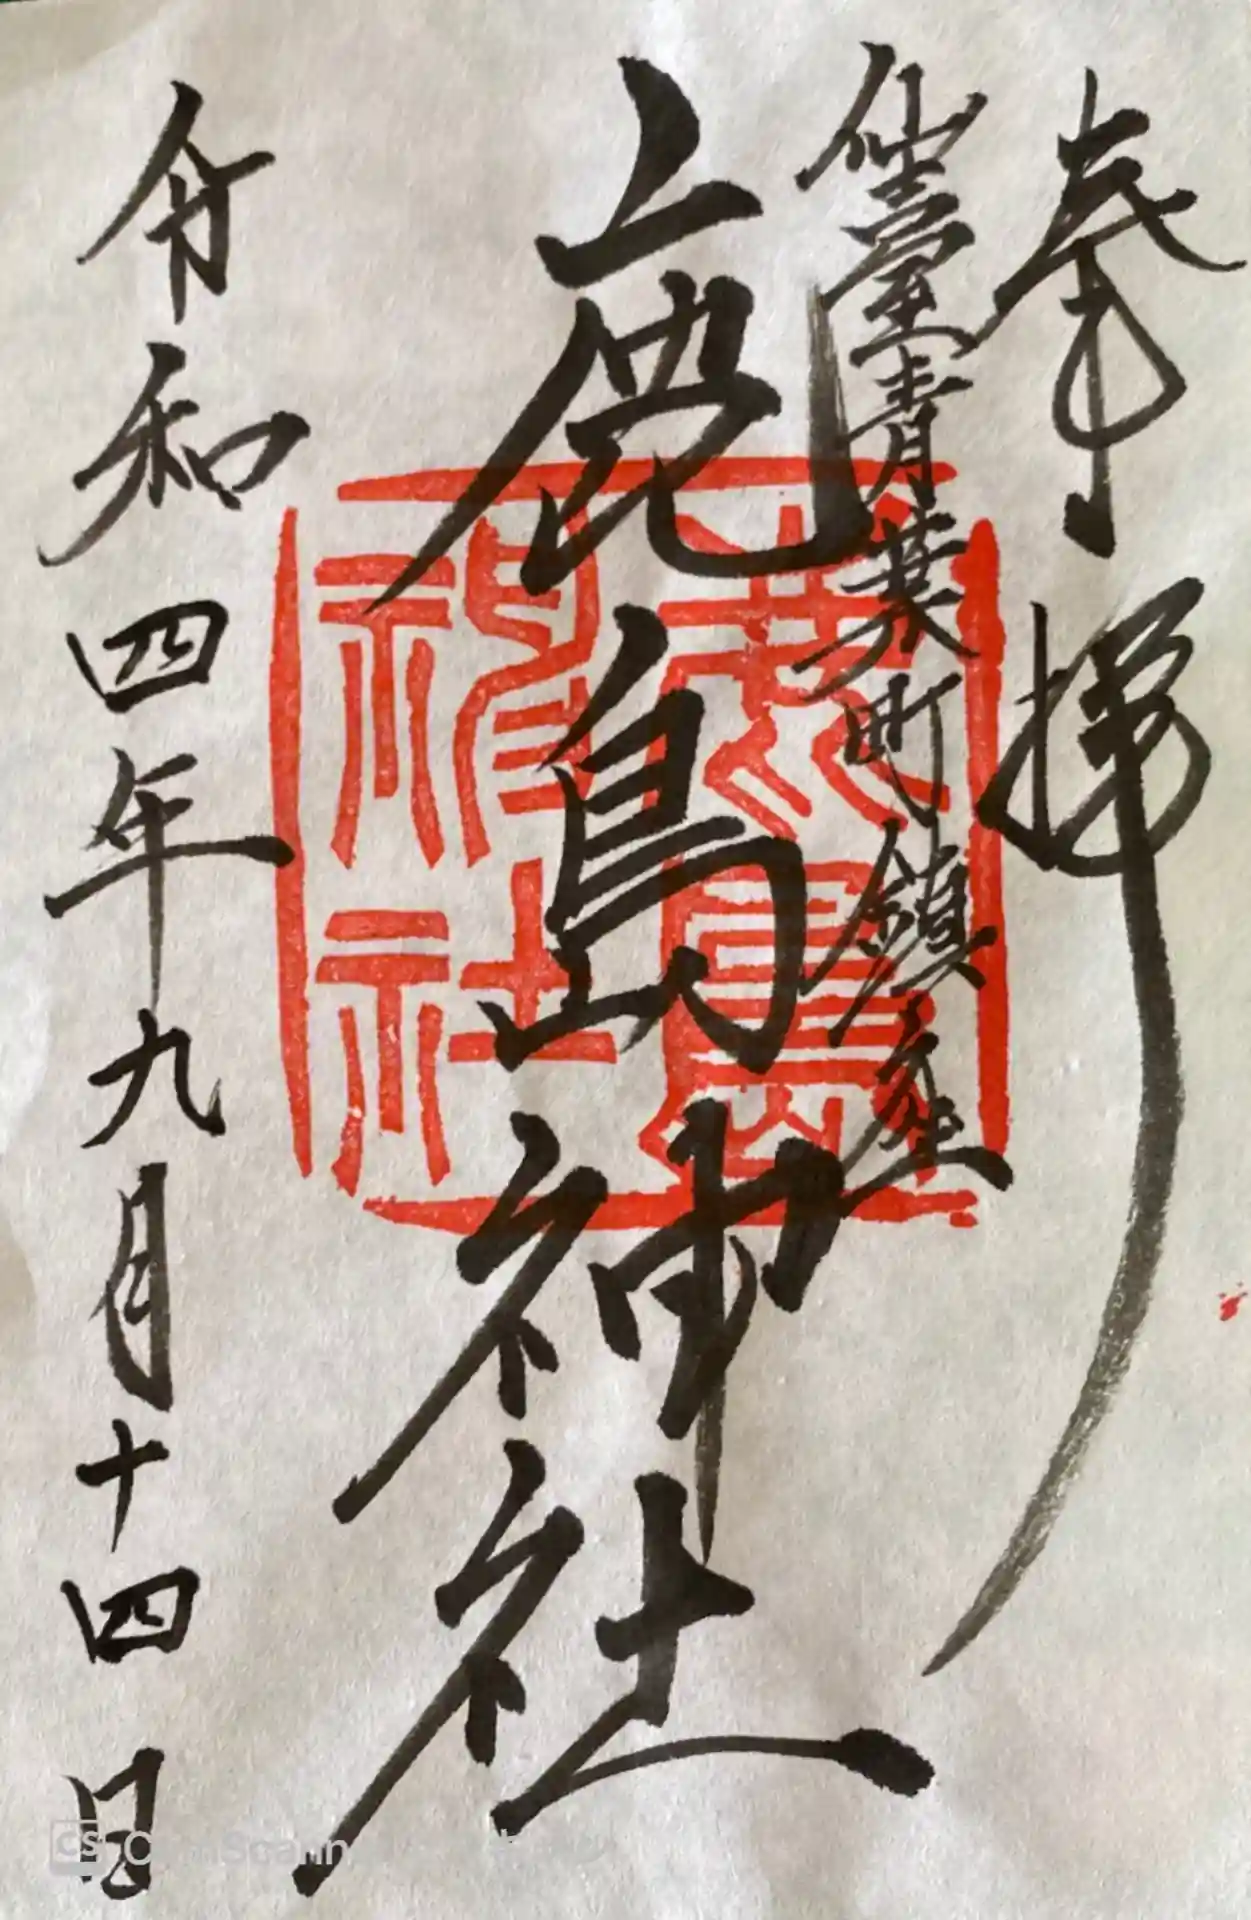 奉拝
仙臺青葉町鎮座
鹿島神社
鹿島神社
令和四年九月十四日
CS CamScanner